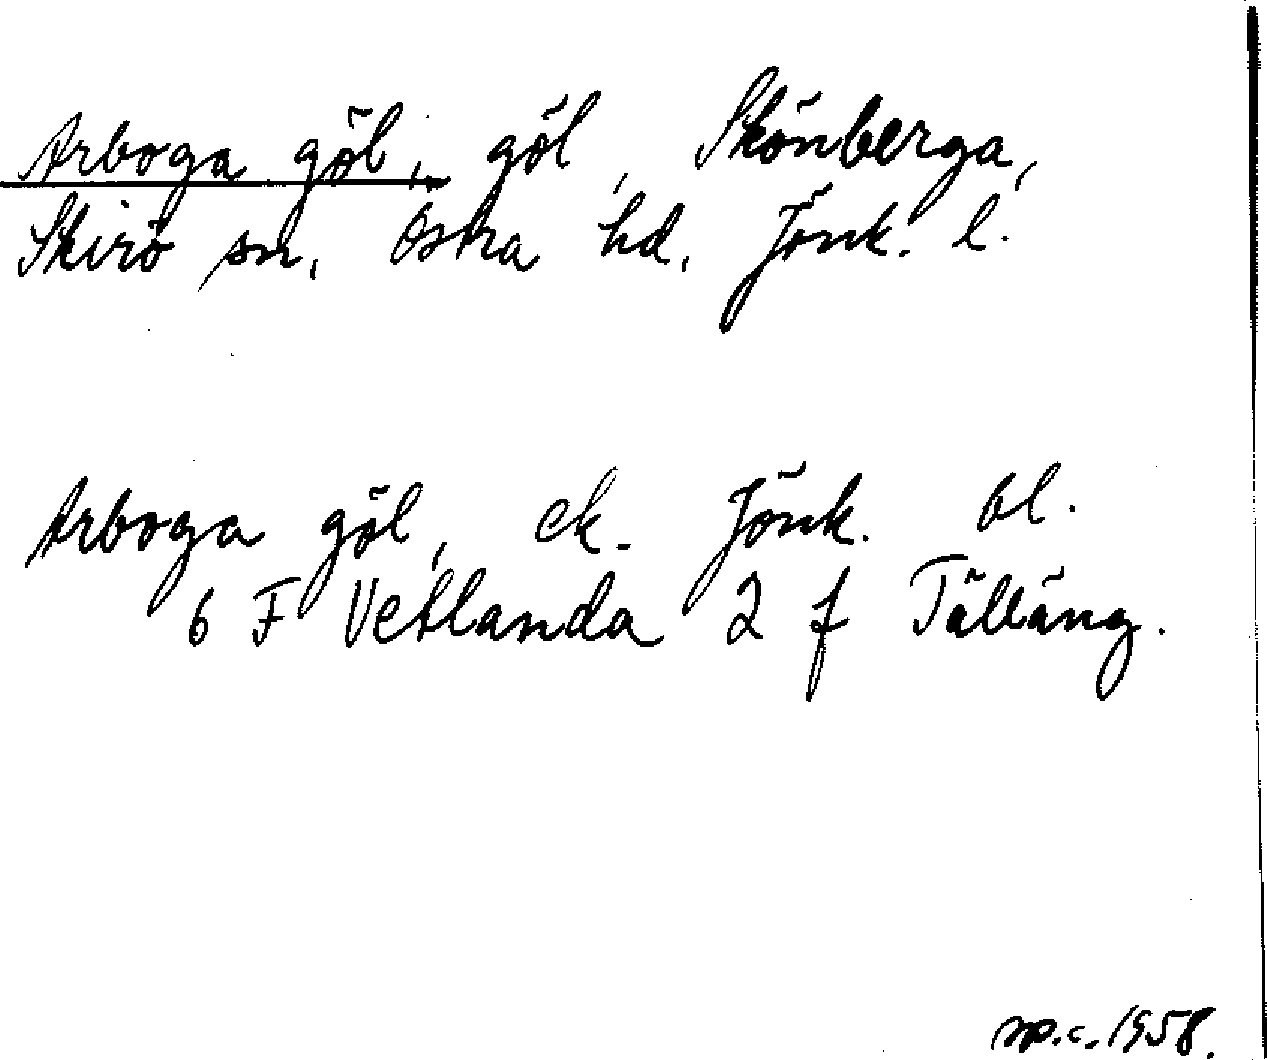 Arboga göl, göl, Skönberga,
Skirö sn, Östra hd, Jönk. l.
Arboga göl, ek. Jönk. bl.
6 F Vetlanda 2 f Tälläng.
sp.c. 1958.